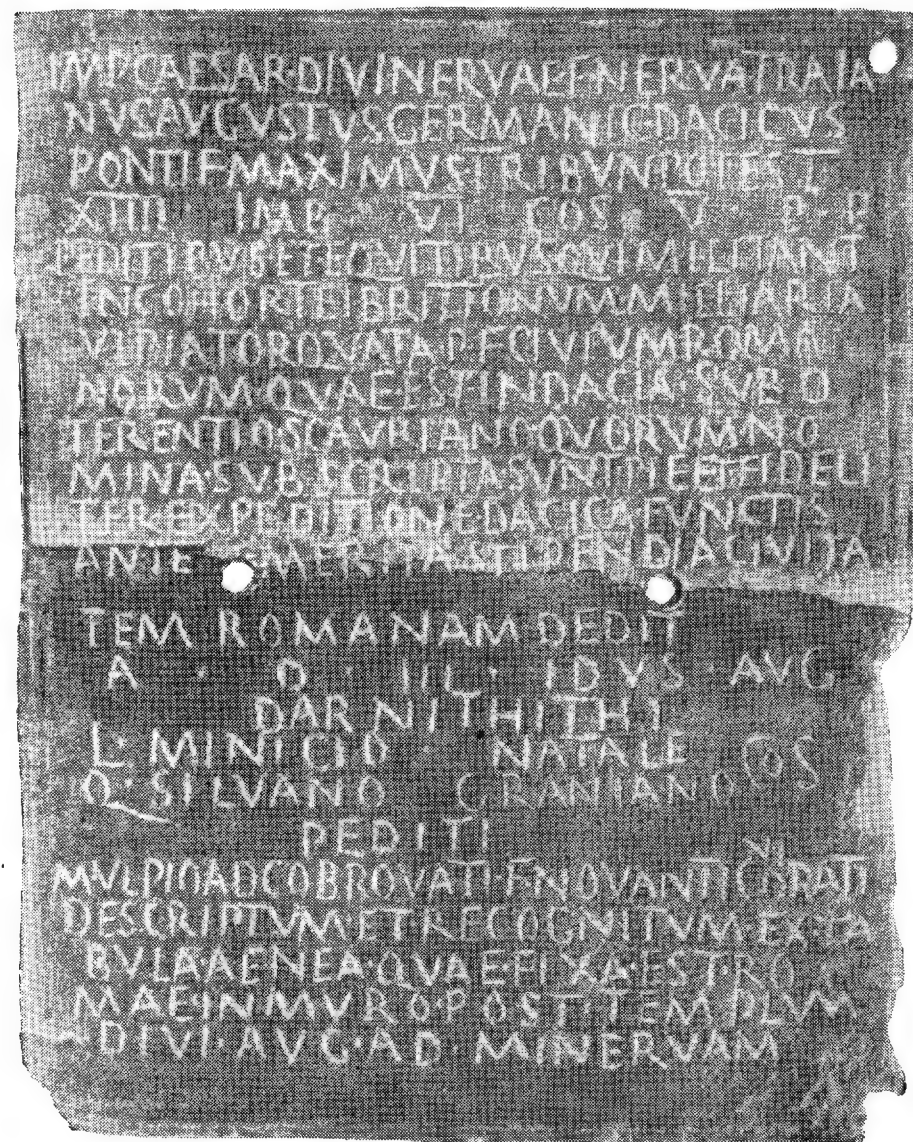 IMP CAESAR·DIVI NERVAE F NERVA TRAIA
NVS AVGVSTVS GERMANIC DACICVS
PONTIF MAXIMVS TRIBVN POTEST
XIIII IMP VI COS V · P · P
PEDITIBVS ET EQVITIBVS QVI MILITANT
IN COHORTE I BRITTONVM MILIARIA
VLPIA TORQVATA P F CIVIVM ROMA
NORVM·QVAE EST IN DACIA·SVB D
TERENTIO·SCAVRIANO QVORVM NO
MINA·SVB·SCRIPTA·SVNT PIE ET FIDELI
TER·EXPEDITIONE DACICA FVNCTIS
ANTE EMERITA STIPENDIA CIVITA
TEM ROMANAM DEDIT
A · D · III · IDVS · AVG
DARNITHITHI
L· MINICIO NATALE
COS
Q· SILVANO GRANIANO
PEDITI
VI
M VLPIO ADCOBROVATI·F NOVANTICO RATI
DESCRIPTVM·ET RECOGNITVM·EX TA
BVLA·AENEA·QVAE FIXA·EST·RO
MAE·IN MVRO·POST·TEMPLVM
DIVI·AVG·AD·MINERVAM